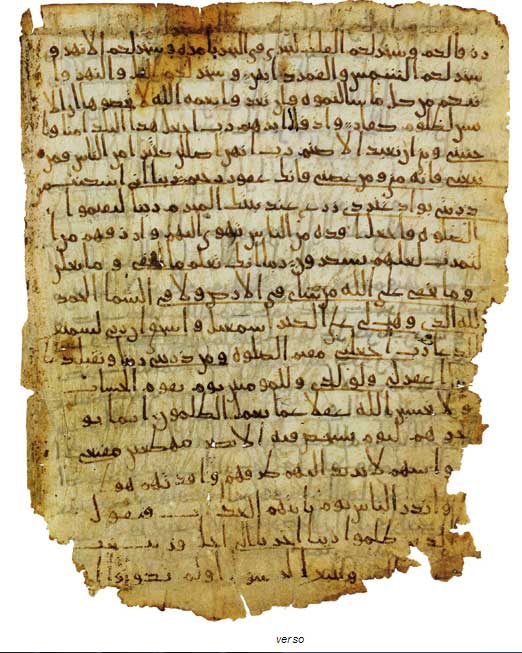 لكم وسخر لكم الفلك لتجري في البحر بامره وسخر لكم الانهر و
سخر لكم الشمس والقمر دابين وسخر لكم اليل والنهر وا
تيكم من كل ما سالتموه وان تعدوا نعمه الله لا تحصوها ان الا
نسن لظلوم كفار واذ قال ابرهيم رب اجعل هذا البلد امنا وا
جنبني وبني ان نعبد الاصنم رب انهن اضللن كثيرا من الناس فمن
تبعني فانه مني ومن عصني فانك غفور رحيم ربنا اني اسكنت من
ذريتي بواد غير ذي زرع عند بيتك المحرم ربنا ليقيموا ا
لصلوه فاجعل افده من الناس تهوي اليهم وارزقهم من ا
لثمرت لعلهم يشكرون ربنا انك تعلم ما نخفي وما نعلن
وما يخفى على الله من شي في الارض ولا في السما الحمد
لله الذي وهب لي على الكبر اسمعيل واسحق ان ربي لسميع
الدعا رب اجعلني مقيم الصلوه ومن ذريتي ربنا وتقبل د
اغفر لي ولولدي وللمومنين يوم يقوم الحساب
ولا تحسبن الله غفلا عما يعمل الظلمون انما يو
خرهم ليوم تشخص فيه الابصر مهطعين مقنعي
روسهم لا يرتد اليهم طرفهم وافدتهم هو
ا وانذر الناس يوم ياتيهم العذاب فيقول
الذين ظلموا ربنا اخرنا الى اجل قريب نجب
ونتبع الرسل اولم تكونوا ا
verso